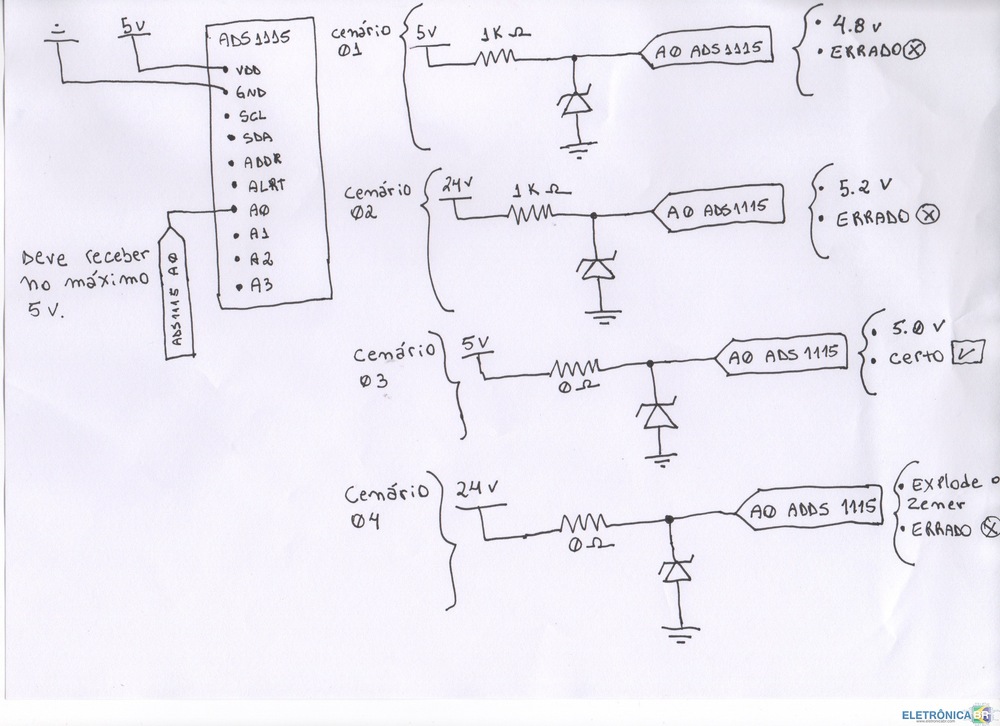 5v
ADS1115
VDD
GND
SCL
SDA
ADDR
ALRT
A0
A1
A2
A3
Deve receber
no máximo
5v.
ADS1115 A0
Cenário
01
5v
1K Ω
A0 ADS1115
• 4.8 v
• ERRADO
Cenário
02
24v
1K Ω
A0 ADS1115
• 5.2 v
• ERRADO
Cenário
03
5v
0Ω
A0 ADS1115
• 5.0 v
• certo
Cenário
04
24v
0Ω
A0 ADDS 1115
• Explode o
Zener
• ERRADO
ELETRÔNICABR
www.eletronicabr.com